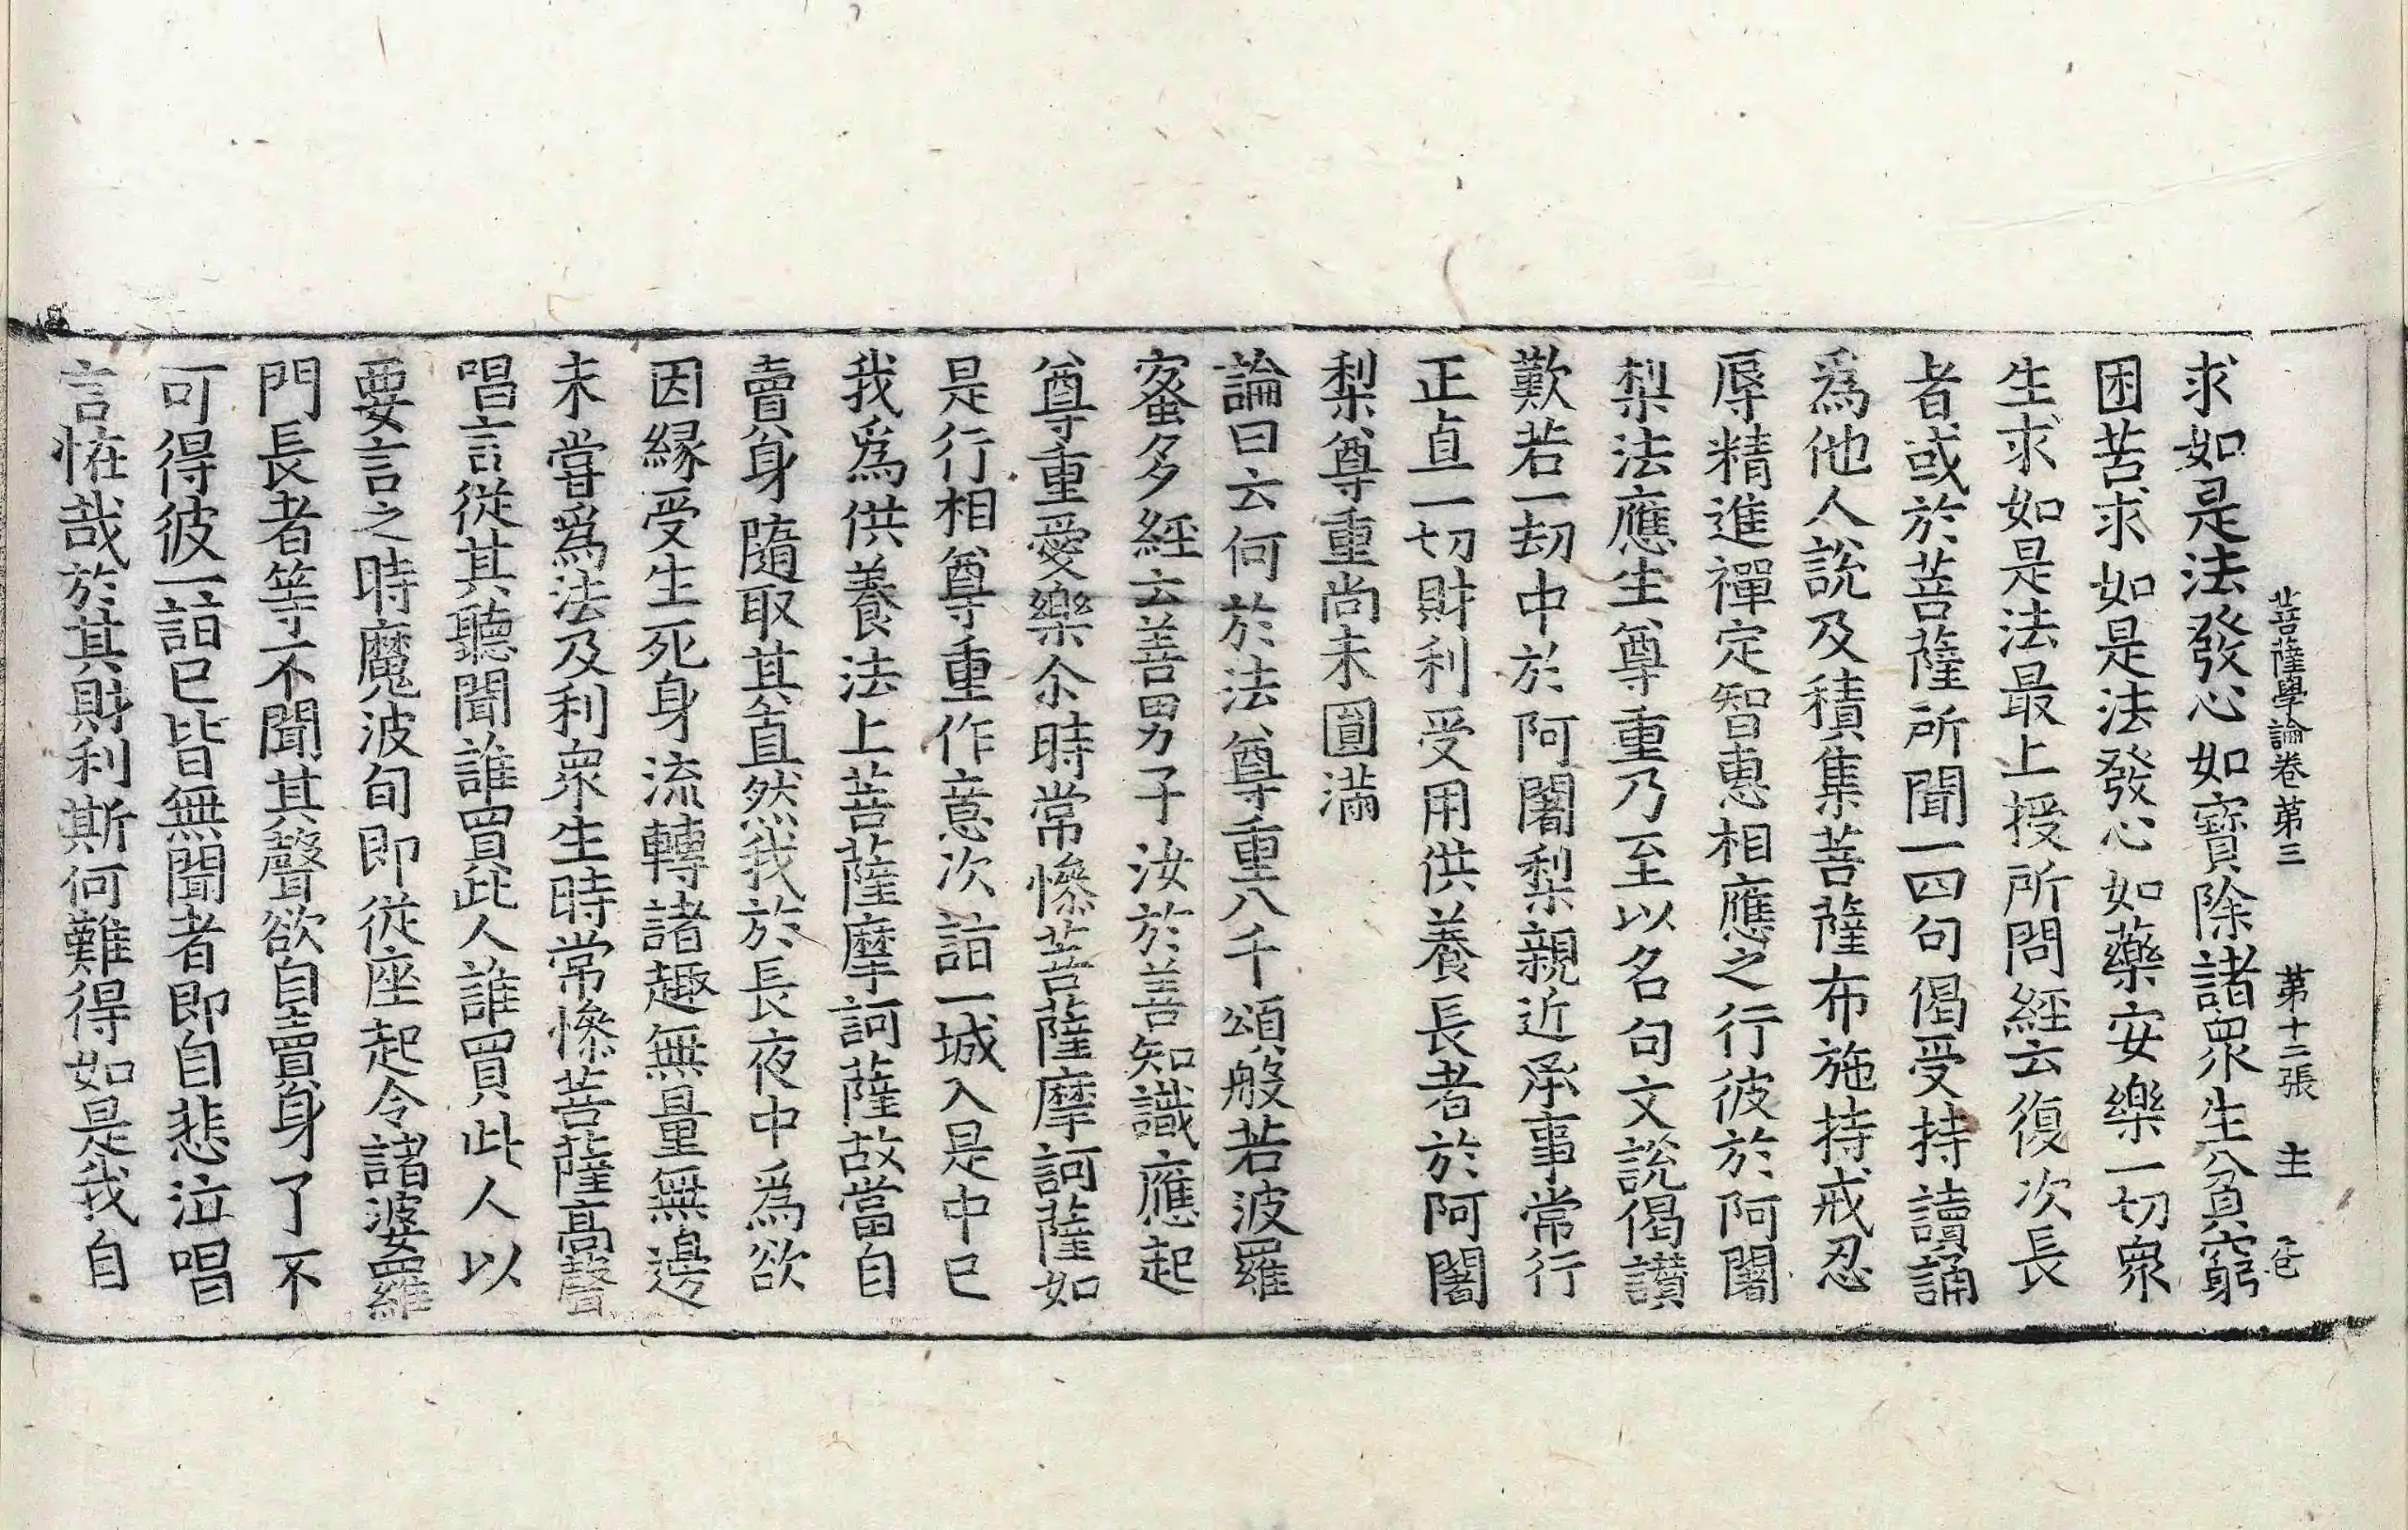 菩薩學論卷第三 第十二張 主
求如是法發心如寶除諸衆生貧窮
困苦求如是法發心如藥安樂一切衆
生求如是法最上授所問經云復次長
者或於菩薩所聞一四句偈受持讀誦
爲他人說及積集菩薩布施持戒忍
辱精進禪定智惠相應之行彼於阿闍
梨法應生尊重乃至以名句文說偈讃
歎若一劫中於阿闍梨親近承事常行
正直一切財利受用供養長者於阿闍
梨尊重尚未圓滿
論曰云何於法尊重八千頌般若波羅
蜜多經云善男子汝於善知識應起
尊重愛樂尒時常慘菩薩摩訶薩如
是行相尊重作意次詣一城入是中已
我爲供養法上菩薩摩訶薩故當自
賣身隨取其直然我於長夜中爲欲
因緣受生死身流轉諸趣無量無邊
未甞爲法及利衆生時常慘菩薩高聲
唱言從其聽聞誰買此人誰買此人以
要言之時魔波旬即從座起令諸婆羅
門長者等不聞其聲欲自賣身了不
可得彼一詣已皆無聞者即自悲泣唱
言恠哉於其財利斯何難得如是我自